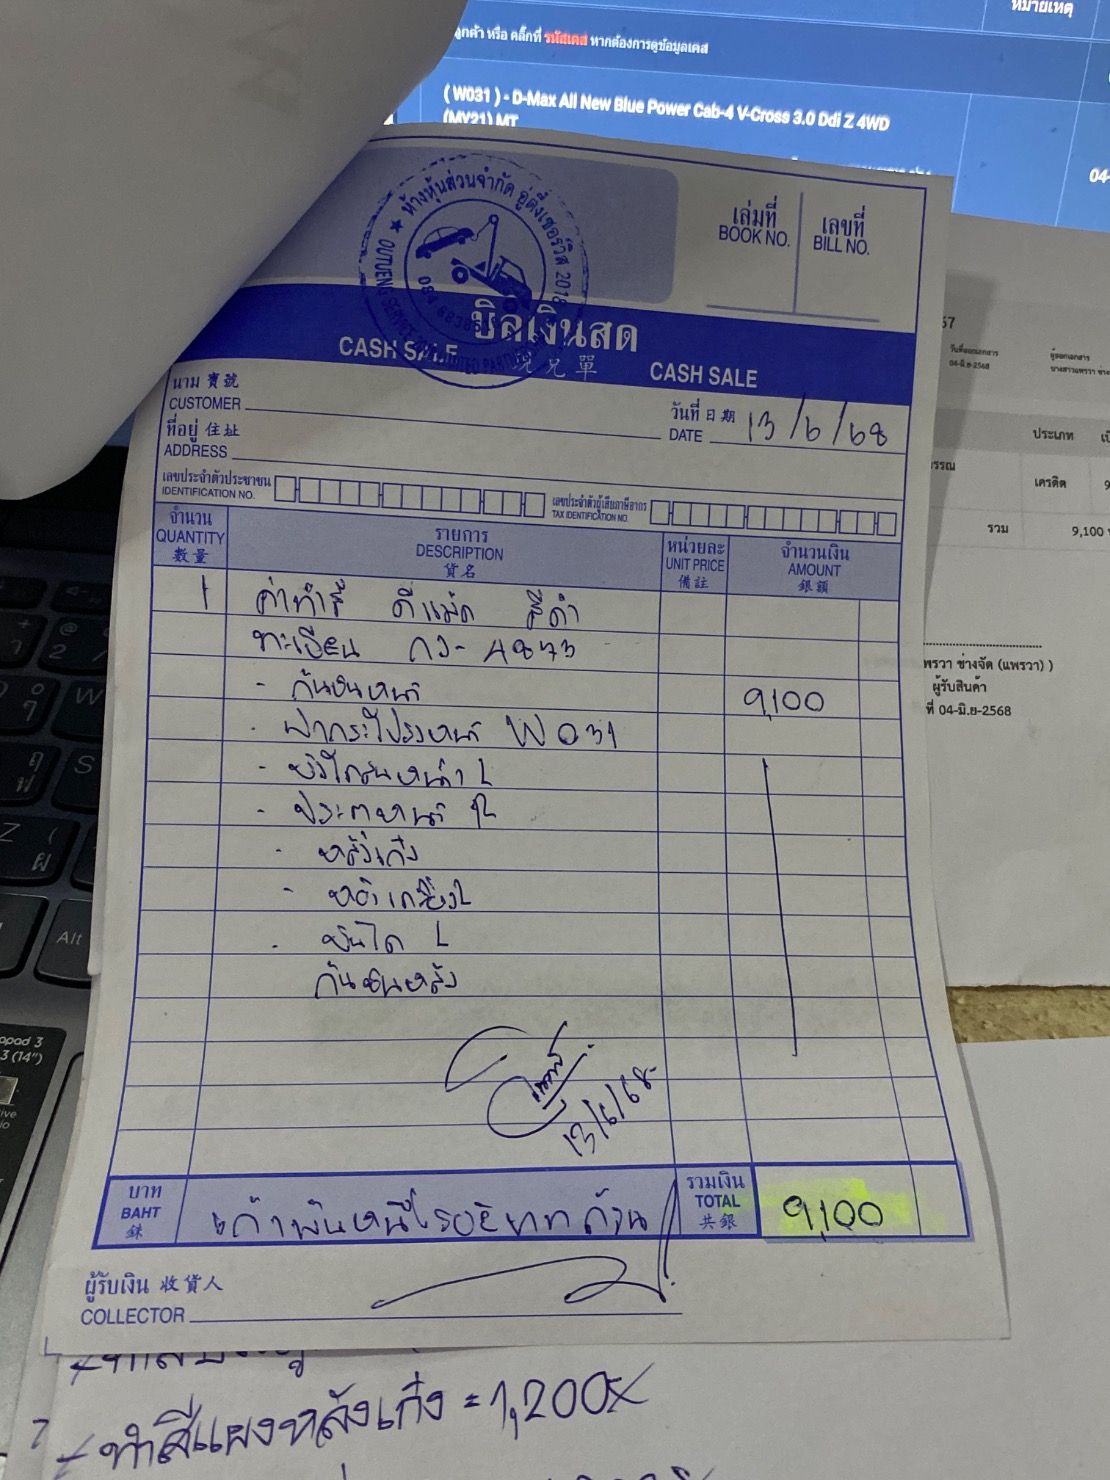 หมายเหตุ
ลูกค้า หรือ คลิ๊กที่ รหัสเคส หากต้องการดูข้อมูลเคส
( W031 ) - D-Max All New Blue Power Cab-4 V-Cross 3.0 Ddi Z 4WD
(MY21) MT
04-
ห้างหุ้นส่วนจำกัด อู่ต๊งเซอร์วิส 2018
เล่มที่ เลขที่
BOOK NO. BILL NO.
บิลเงินสด
CASH SALE 現兌單 CASH SALE
นาม 寶號
CUSTOMER
วันที่ 日期
DATE 13/6/68
ที่อยู่ 住址
ADDRESS
เลขประจำตัวประชาชน
IDENTIFICATION NO.
เลขประจำตัวผู้เสียภาษีอากร
TAX IDENTIFICATION NO.
จำนวน รายการ หน่วยละ จำนวนเงิน
QUANTITY DESCRIPTION UNIT PRICE AMOUNT
數量 貨名 備註 銀額
1 ค่าทำสี ดีแม็ก สีดำ
ทะเบียน กว-4873
- กันชนหน้า 9,100
- ฝากระโปรงหน้า W031
- บังโคลนหน้า L
- ประตูหน้า
- หลังเก๋ง
- บันได L
กันชนหลัง
13/6/68
บาท
BAHT
銖
เก้าพันหนึ่งร้อยบาทถ้วน
รวมเงิน
TOTAL 9,100
共銀
ผู้รับเงิน 收貨人
COLLECTOR
57
วันที่ออกเอกสาร
04-มิ.ย-2568
ผู้ออกเอกสาร
ประเภท
เครดิต
รวม 9,100
พรวา ช่างจัด (แพรวา) )
ผู้รับสินค้า
ที่ 04-มิ.ย-2568
Alt
ทำสีแผงหลังเก๋ง = 1,200